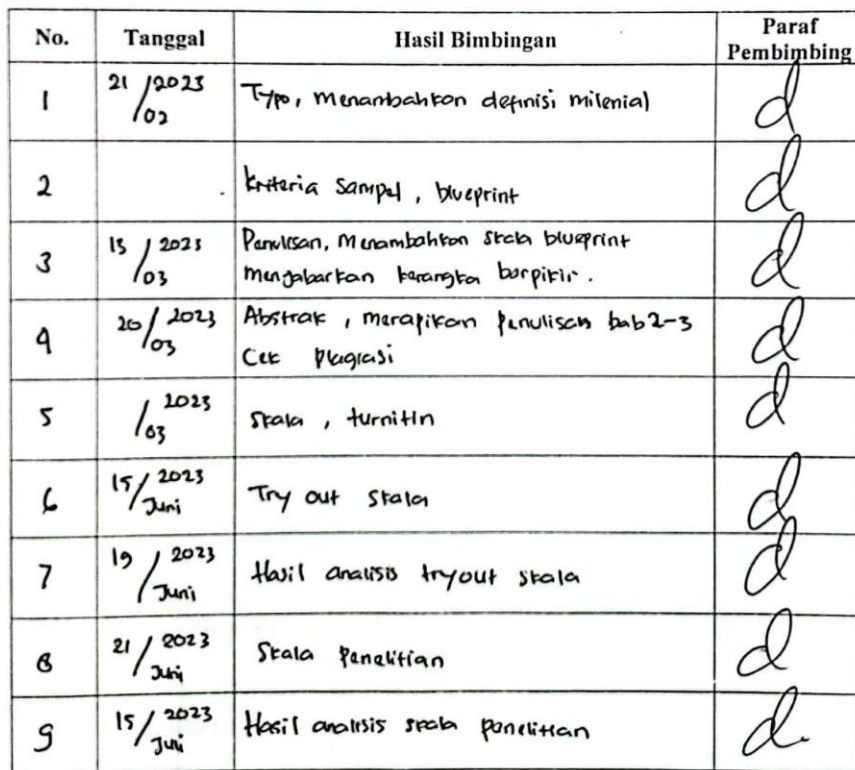 No. Tanggal Hasil Bimbingan Paraf Pembimbing
1 21/02 2023 Typo, menambahkan definisi milenial
2 Kriteria sampel, blueprint
3 13/03 2023 Penulisan, Menambahkan skala blueprint
menjabarkan kerangka berpikir.
4 20/03 2023 Abstrak, merapikan penulisan bab 2-3
Cek plagiasi
5 /03 2023 skala, turnitin
6 15/Juni 2023 Try out skala
7 19/Juni 2023 Hasil analisis tryout skala
8 21/Juni 2023 Skala penelitian
9 15/Juli 2023 Hasil analisis skala penelitian